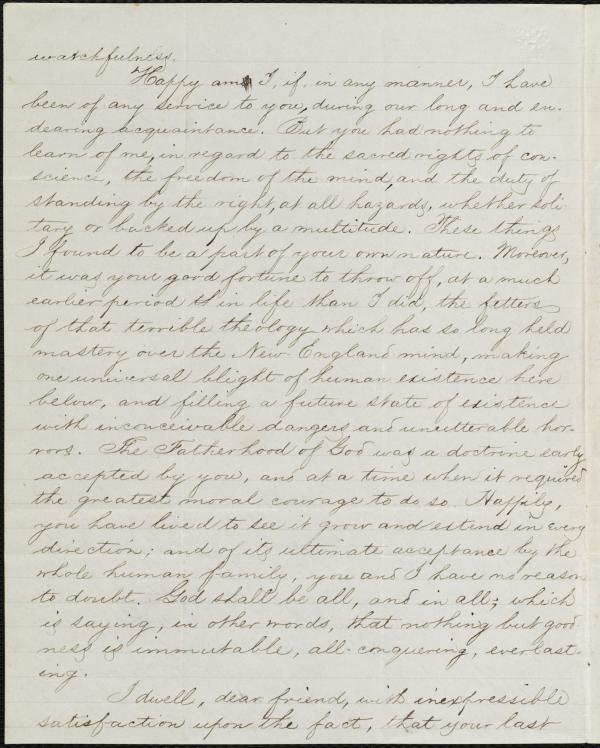 watchfulness.
Happy am I, if, in any manner, I have
been of any service to you, during our long and en-
dearing acquaintance. But you had nothing to
learn of me, in regard to the sacred rights of con-
science, the freedom of the mind, and the duty of
standing by the right, at all hazards, whether soli-
tary or backed up by a multitude. These things
I found to be a part of your own nature. Moreover,
it was your good fortune to throw off, at a much
earlier period in life than I did, the fetters
of that terrible theology which has so long held
mastery over the New England mind, making
one universal blight of human existence here
below, and filling a future state of existence
with inconceivable dangers and unutterable hor-
rors. The Fatherhood of God was a doctrine early
accepted by you, and at a time when it required
the greatest moral courage to do so. Happily,
you have lived to see it grow and extend in every
direction; and of its ultimate acceptance by the
whole human family, you and I have no reason
to doubt. God shall be all, and in all; which
is saying, in other words, that nothing but good-
ness is immutable, all-conquering, everlast-
ing.
I dwell, dear friend, with inexpressible
satisfaction upon the fact, that your last